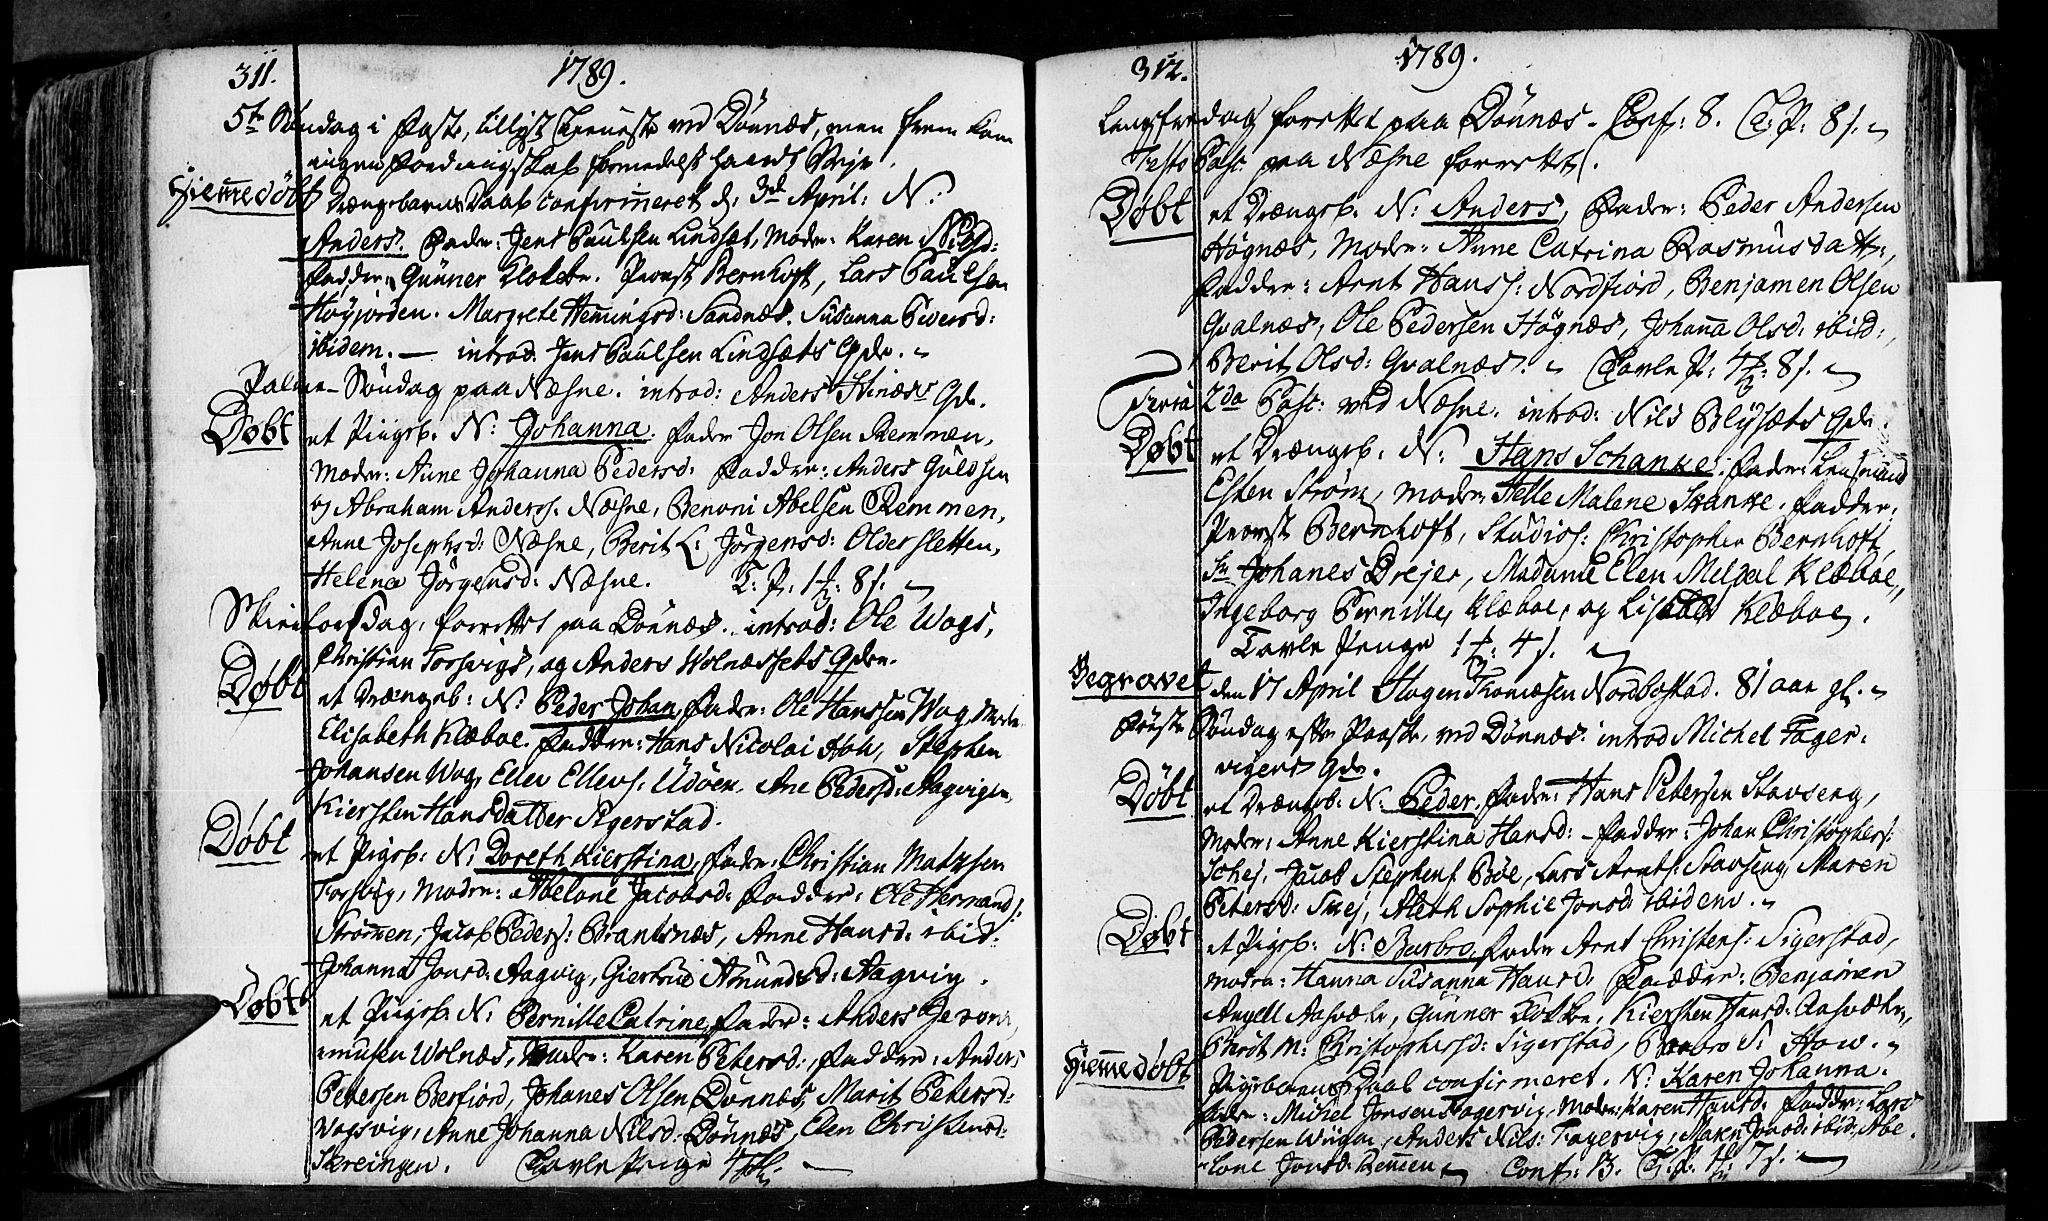 311.
1789.
5te Søndag i Faste, tillyst Tieneste ved Dönnæs, men frem kom
ingen formedelst haardt Vejr.
Hjemme døbt
Drængebarns Daab confirmeret d: 3de April: N:
Anders. Fader: Jens Paulsen Lindset, Moder: Karen Nilsd:
Faddere: Gunner Klokker. Provst Bernhoft, Lars Paulsen
Høyjorden. Margrete Hemingsd: Sandnæs. Susanna Siversd:
ibidem. — introd. Jens Paulsen Lindsæts Qde.
Palme-Søndag paa Næsne. introd: Anders Qde.
Døbt
et Pigeb. N: Johanna. Fader Jon Olsen Remmen,
Moder: Anne Johanna Pedersd. Faddere: Anders Guldsen
og Abraham Anderss. Næsne, Benoni Abelsen Remmen,
Anne Josephsd: Næsne, Berit L: Jörgensd: Oldersletten,
Helena Jörgensd: Næsne. T: P: 1 8 s.
Skiertorsdag, forrettet paa Dönnæs. introd: Ole Wogs,
Christian Torsvigs, og Anders Wolnæssets Qder.
Døbt
et Drængeb: N: Peder Johan, Fader: Ole Hanssen Wog, Moder
Elisabeth Klæboe. Faddere: Hans Nicolai How, Stephen
Johansen Wog, Ellev Ellevs: Üdöen. Ane Pedersd: Aagvigen,
Kiersten Hansdatter Sigerstad.
Døbt
et Pigeb: N: Doreth Kierstina, Fader: Christian Matzsen
Torsvig, Moder: Abelone Jacobsd: Faddere: Ole Hernands:
Strömen, Jacob Peders: Brantsnæs, Anne Hansd: ibid:
Johanna Jonsd: Aagvig, Giertrud Amundsd: Aagvig.
Døbt
et Pigeb: N: Pernille Catrine, Fader: Anders
musen Wolnæs, Moder: Karen Petersd:, Faddere: Anders
Petersen Berfiord, Johanes Olsen Dönnæs, Marit Petersd:
Wogsvig, Anne Johanna Nilsd: Dönnæs, Elen Christensd:
Skreingen. Tavle Penge
312.
1789.
Langfredag forrettet paa Dönnæs. Conf: 8. T: P: 8 s.
Festo Pasc. paa Næsne forrettet.
Døbt
et Drængeb. N: Anders, Fader: Peder Andersen
Högnæs, Moder: Anne Catrina Rasmusdatt:,
Faddere: Arnt Hanss: Nordfiord, Benjamen Olsen
Qvalnæs, Ole Pedersen Högnæs, Johanna Olsd: ibid:,
Berit Olsd: Qvalnæs. Tavle P: 4 8 s.
Feria 2da Pasc: ved Næsne. introd: Nils Blÿsæts Qde.
Døbt
et Drængeb. N: Hans Schanke. Fader: Lensmand
Esten Ström, Moder: Helle Malene Skanke. Faddere:
Provst Bernhoft, Studios: Christopher Bernhoft,
Sr Johanes Drejer, Madame Elen Metzel Klæboe,
Ingeborg Pernille, Klæboe, og Klæboe.
Tavle Penge 1 4 s.
Begravet den 17 April Hagen Thomesen Nordbostad. 81 aar gl.
Förste Søndag efter Paaske, ved Dönnæs. introd Michel Fager-
vigens Qde.
Døbt
et Drængeb: N: Peder. Fader: Hans Petersen Stavseng,
Moder: Anne Kierstina Hansd: Faddere: Johan Christophers:
Schej, Jacob Stephens Böe, Lars Arnts: Stavseng, Maren
Petersd: Skej, Aleth Sophie Jonsd: ibidem.
Døbt
et Pigeb: N: Barbro. Fader Arnt Christens: Sigerstad,
Moder: Hanna Susanna Hansd: Faddere: Benjamen
Angell Aasvær, Gunner Klokker, Kiersten Hansd: Aasvær,
Berit M: Christophersd: Sigerstad, Barbro S: How.
Hiemme døbt
Pigebarns Daab confirmeret. N: Karen Johanna.
Fader: Michel Jonsen Fagervig, Moder: Karen Hansd: Faddere: Lars
Pedersen, Anders Nils: Fagervig, Maren Jonsd: ibid:, Abe-
lone Jonsd: Remen. Conf: 13. T: P: 7 s.